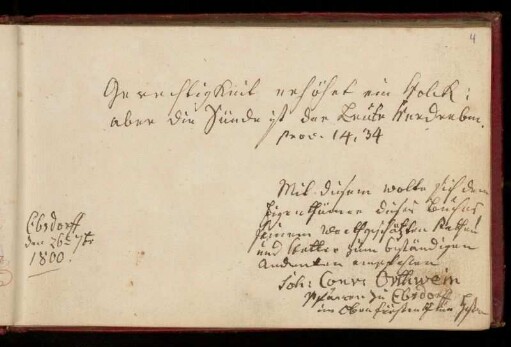 4
Gerechtigkeit erhöhet ein Volck;
aber die Sünde ist der Leute Verderben.
Prov. 14, 34
Mit diesem wolte sich dem
Eigenthümer dieses Buches
seinem werthgeschätzten
und Vetter zum beständigen
Andenken empfehlen
Joh: Conr: Orthwein
Pfarrer zu Ebsdorff
im Oberfürstenthum
Ebsdorff
den 26
1800.